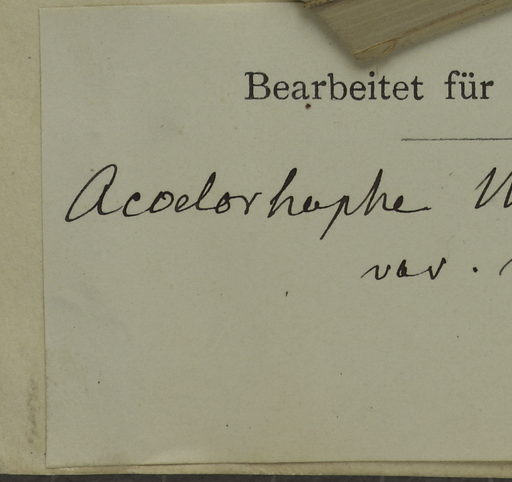 Bearbeitet für
Acoelorhaphe W
var.